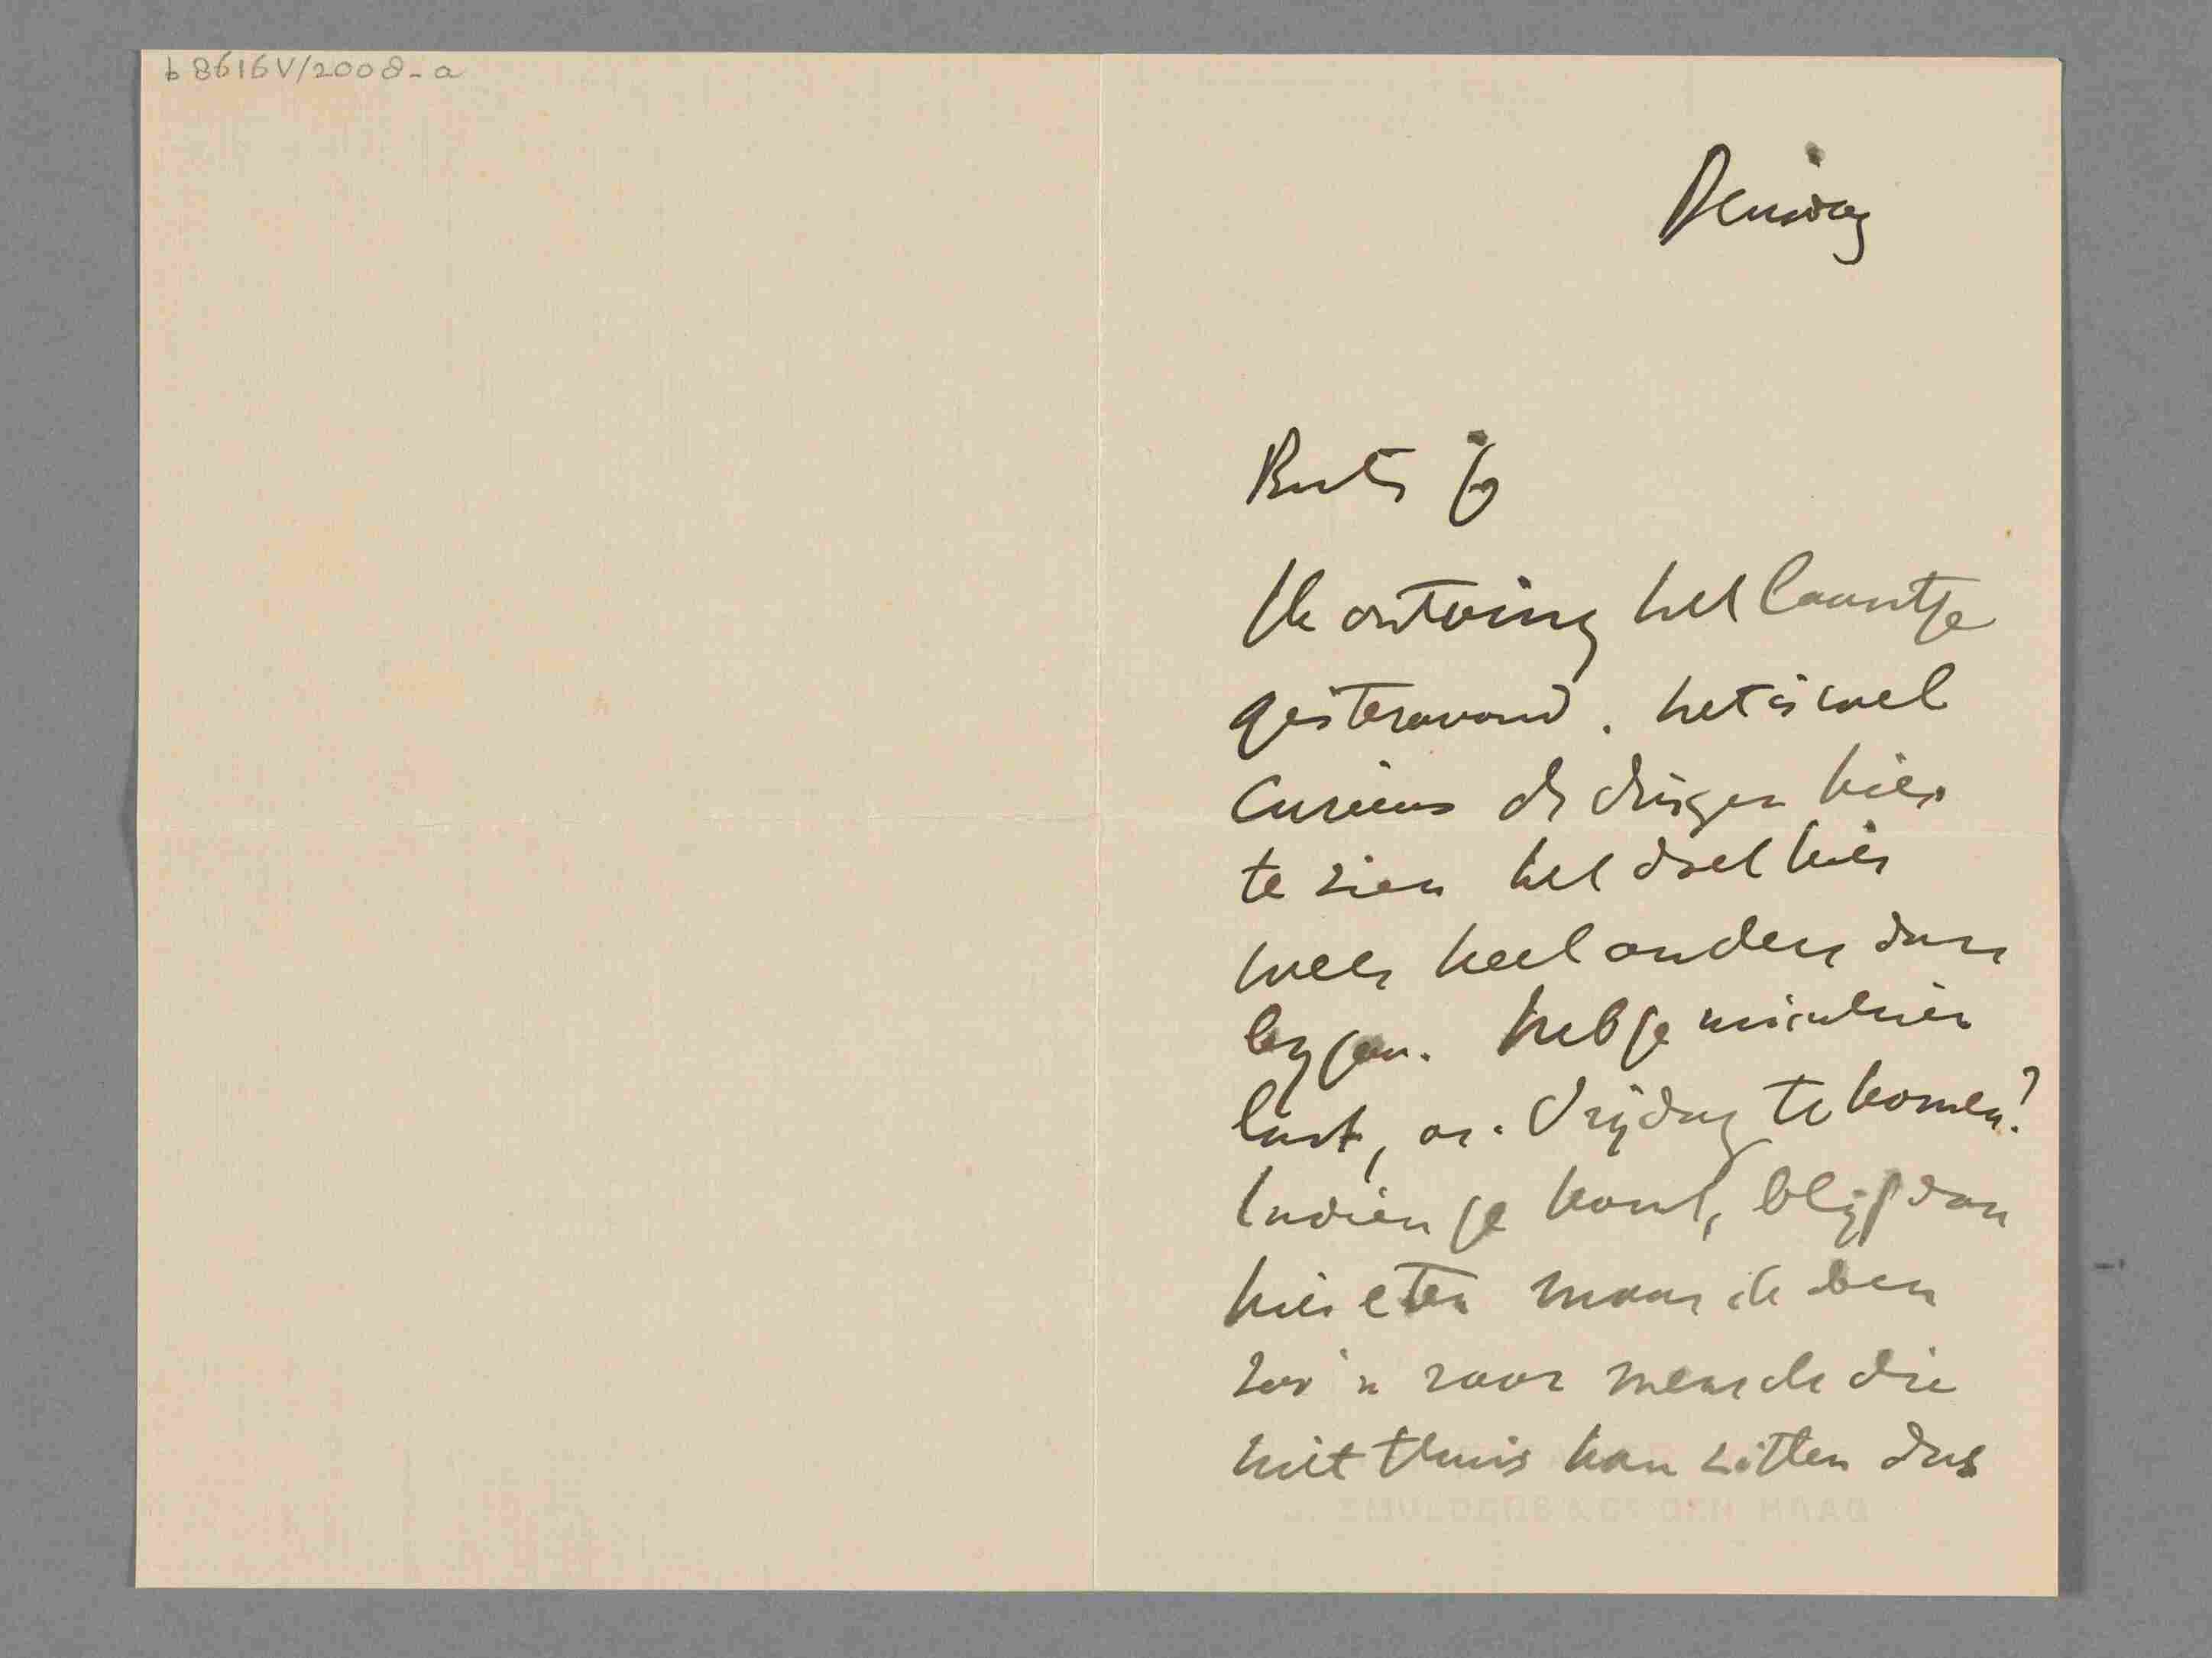 b 8616 V/2008-a
Dinsdag
Beste Jo
Ik ontving het laantje
gisteravond. het is wel
curieus de dingen hier
te zien het doet hier
weer heel anders dan
by jou. heb je misschien
lust, om Vrijdag te komen?
Indien je komt, blijf dan
hier eten maar ik ben
zoo'n raar mensch die
niet thuis kan zitten dus
SMULDERS & Co DEN HAAG